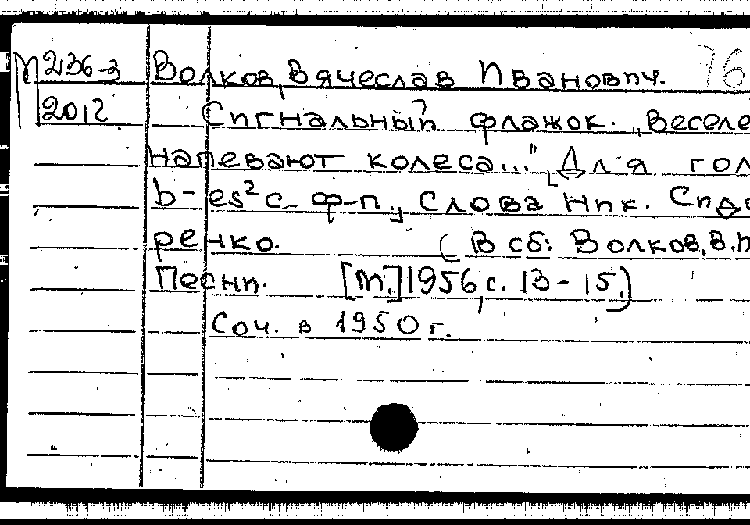 М 236-3 Волков, Вячеслав Иванович. 76
2012 Сигнальный флажок. „Веселе
напевают колеса..." Для гол
b-es² с ф-п., Слова Ник. Сидо
ренко. (В сб: Волков, В.И
Песни. [М.] 1956, с. 13-15.)
Соч. в 1950 г.